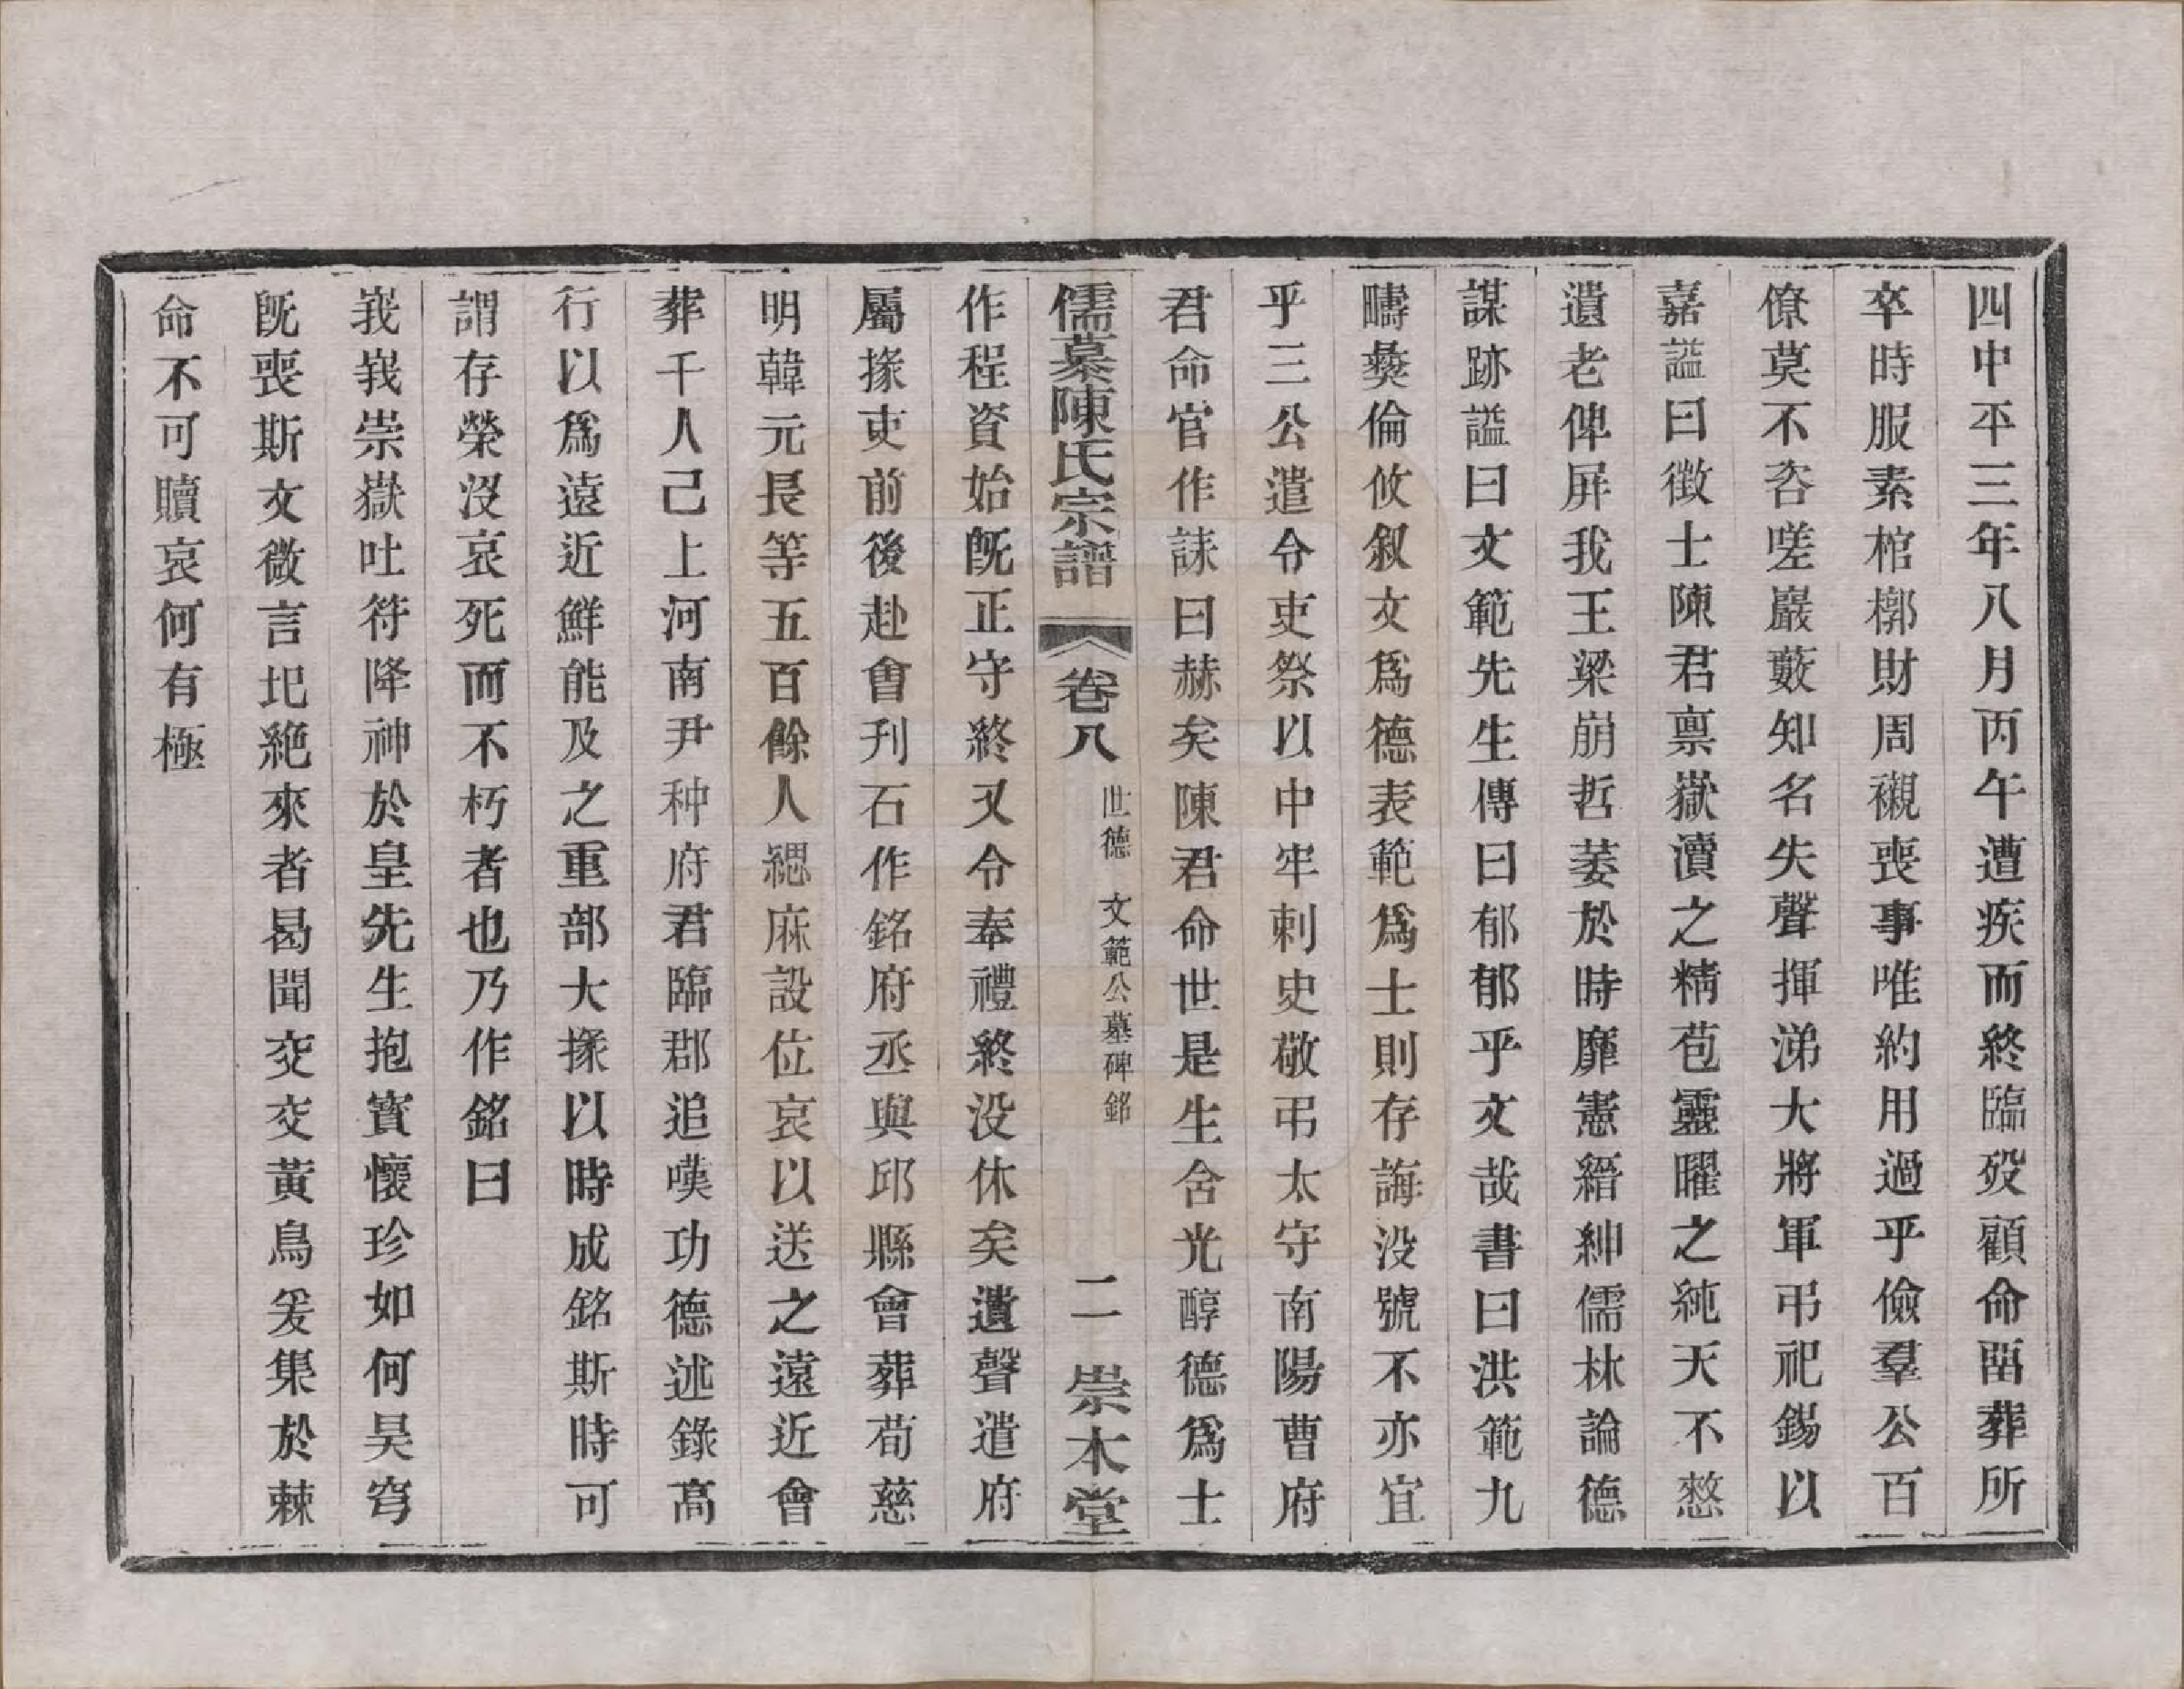 四中平三年八月丙午遭疾而終臨歿顧命畱葬所
卒時服素棺槨財周襯喪事唯約用過乎儉羣公百
僚莫不咨嗟巖藪知名失聲揮涕大將軍弔祀錫以
嘉謚曰徵士陳君禀嶽瀆之精苞靈曜之純天不憖
遺老俾屏我王梁崩哲萎於時靡憲縉紳儒林論德
謀跡謚曰文範先生傳曰郁郁乎文哉書曰洪範九
疇彜倫攸叙文爲德表範爲士則存誨没號不亦宜
乎三公遣令吏祭以中牢刺史敬弔太守南陽曹府
君命官作誄曰赫矣陳君命世是生含光醇德爲士
儒慕陳氏宗譜 卷八 世德 文範公墓碑銘 二 崇本堂
作程資始旣正守終又令奉禮終没休矣遺聲遣府
屬掾吏前後赴會刋石作銘府丞與邱縣會葬荀慈
明韓元長等五百餘人緦麻設位哀以送之遠近會
葬千人己上河南尹种府君臨郡追嘆功德述錄高
行以爲遠近鮮能及之重部大掾以時成銘斯時可
謂存榮没哀死而不朽者也乃作銘曰
峩峩崇嶽吐符降神於皇先生抱寳懷珍如何昊穹
旣喪斯文微言圯絶來者曷聞交交黃鳥爰集於棘
命不可贖哀何有極